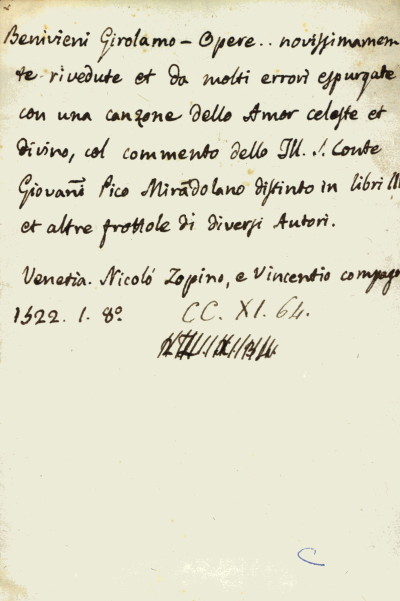 Benivieni Girolamo - Opere.. novissimamen
te rivedute et da molti errori espurgate
con una canzone dello Amor celeste et
divino, col commento dello Ill. S. Conte
Giovañi Pico Mirãdolano distinto in libri III
et altre frottole di diversi Autori.
Venetia. Nicoló Zopino, e Vincentio compago
1522. 1. 8º
CC. XI. 64.
C